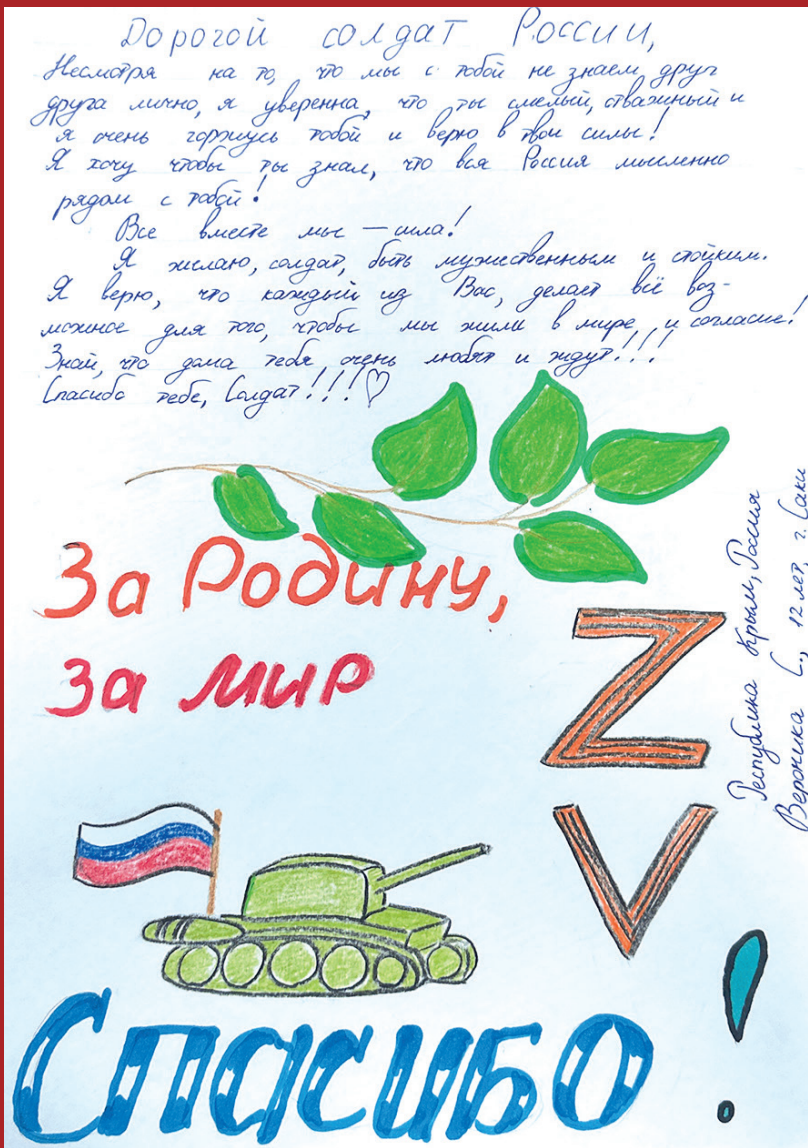 Дорогой солдат России,
Несмотря на то, что мы с тобой не знаем друг
друга лично, я уверенна, что ты смелый, отважный и
я очень горжусь тобой и верю в твои силы!
Я хочу чтобы ты знал, что вся Россия мысленно
рядом с тобой!
Все вместе мы – сила!
Я желаю, солдат, быть мужественным и стойким.
Я верю, что каждый из Вас, делает всё воз-
можное для того, чтобы мы жили в мире, и согласие!
Знай, что дома тебя очень любят и ждут!!!
Спасибо тебе, Солдат!!!♡
За Родину,
за мир
Z
V
Республика Крым, Россия
Вероника С., 12 лет, г. Саки
Спасибо!